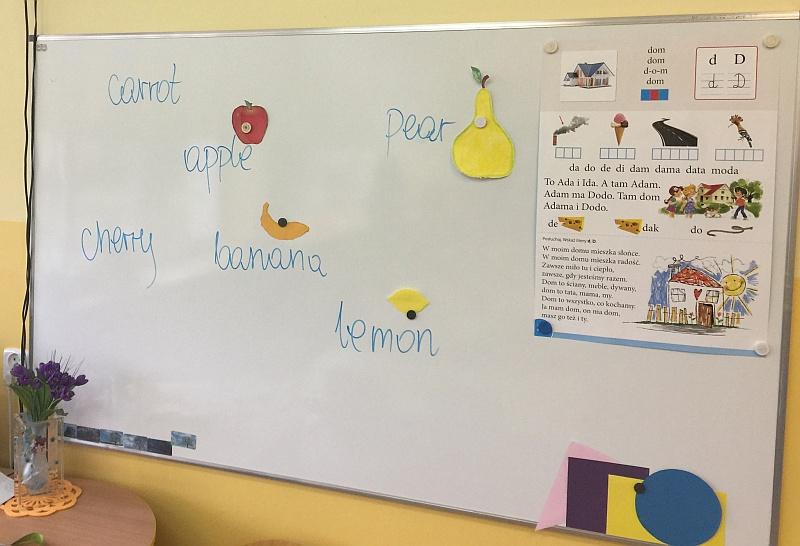 carrot
apple
pear
cherry
banana
lemon
dom
dom
d-o-m
dom
d D
d D
da do de di dam dama data moda
To Ada i Ida. A tam Adam.
Adam ma Dodo. Tam dom
Adama i Dodo.
de
dak
do
Posłuchaj. Wskaż litery d, D.
W moim domu mieszka słońce.
W moim domu mieszka radość.
Zawsze miło tu i ciepło,
zawsze, gdy jesteśmy razem.
Dom to ściany, meble, dywany,
dom to tata, mama, my.
Dom to wszystko, co kochamy.
Ja mam dom, on ma dom,
masz go też i ty.